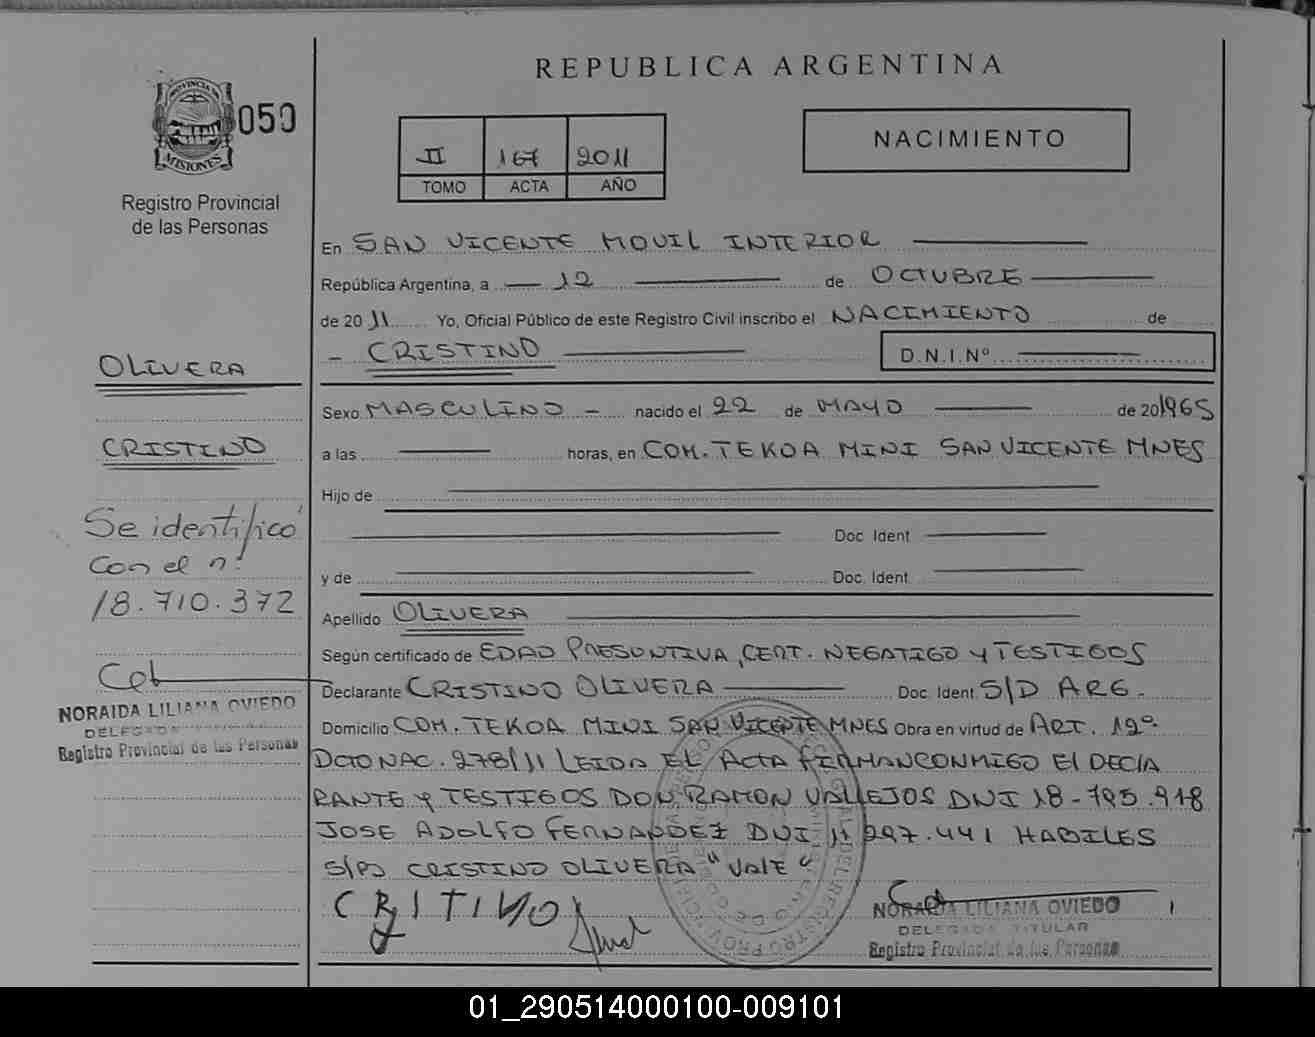 REPUBLICA ARGENTINA
PROVINCIA DE
MISIONES
050
Registro Provincial
de las Personas
II 167 2011
TOMO ACTA AÑO
NACIMIENTO
En SAN VICENTE MOVIL INTERIOR
República Argentina, a 12 de OCTUBRE
de 2011 Yo, Oficial Público de este Registro Civil inscribo el NACIMIENTO de
- CRISTINO
D.N.I.Nº
OLIVERA
CRISTINO
Se identificó
con el nº
18.710.372
NORAIDA LILIANA OVIEDO
DELEGADA
Registro Provincial de las Personas
Sexo MASCULINO - nacido el 22 de MAYO de 201965
a las horas, en COM. TEKOA MINI SAN VICENTE MNES
Hijo de
Doc. Ident
y de Doc. Ident.
Apellido OLIVERA
Según certificado de EDAD PRESUNTIVA, CERT. NEGATIGO Y TESTIGOS
Declarante CRISTINO OLIVERA Doc. Ident. S/D ARG.
Domicilio COM. TEKOA MINI SAN VICENTE MNES Obra en virtud de ART. 12º
DCTO NAC. 278/11 LEIDA EL ACTA FIRMAN CONMIGO El DECLA
RANTE Y TESTIGOS DON RAMON VALLEJOS DNI 18-795.918
JOSE ADOLFO FERNANDEZ DNI 11 297.441 HABILES
S/PS CRISTINO OLIVERA "VALE"
NORAIDA LILIANA OVIEDO
DELEGADA TITULAR
Registro Provincial de las Personas
01_290514000100-009101